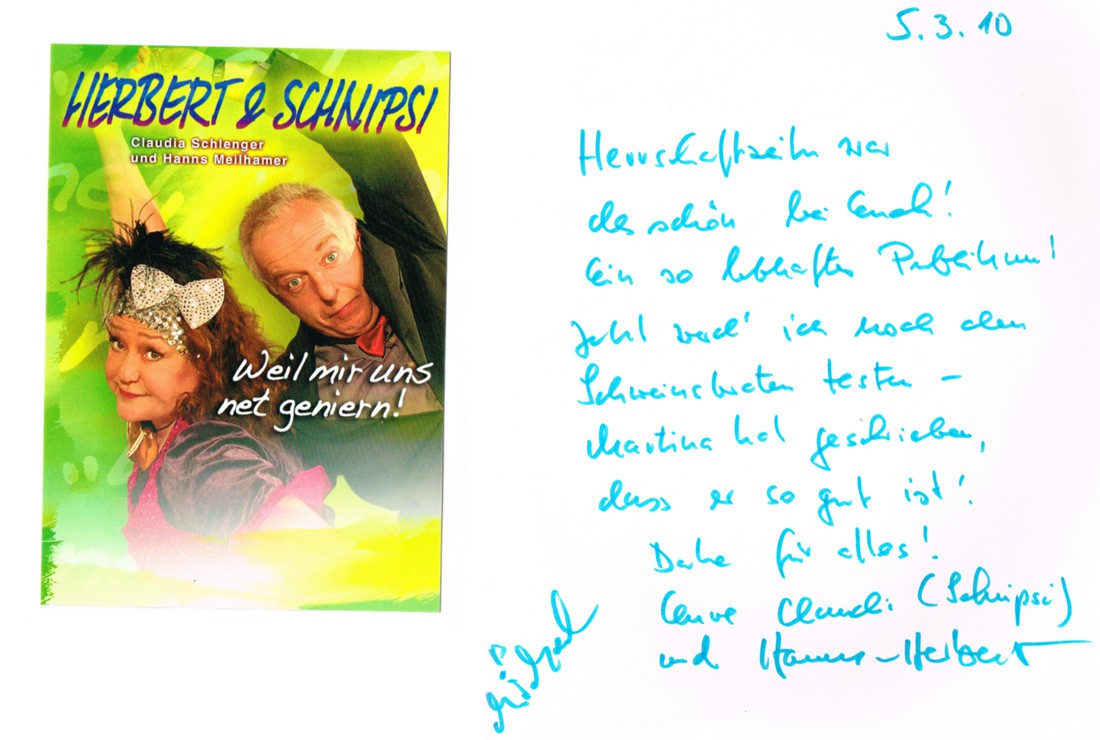 HERBERT & SCHNIPSI
Claudia Schlenger
und Hanns Meilhamer
Weil mir uns
net geniern!
5.3.10
Herrschaftzeiten war
des schön bei Euch!
Ein so lebhaftes Publikum!
Jetzt werd' ich noch den
Schweinsbraten testen –
Martina hat geschrieben,
dass er so gut ist!
Danke für alles!
Eure Claudi (Schnipsi)
und Hanns-Herbert